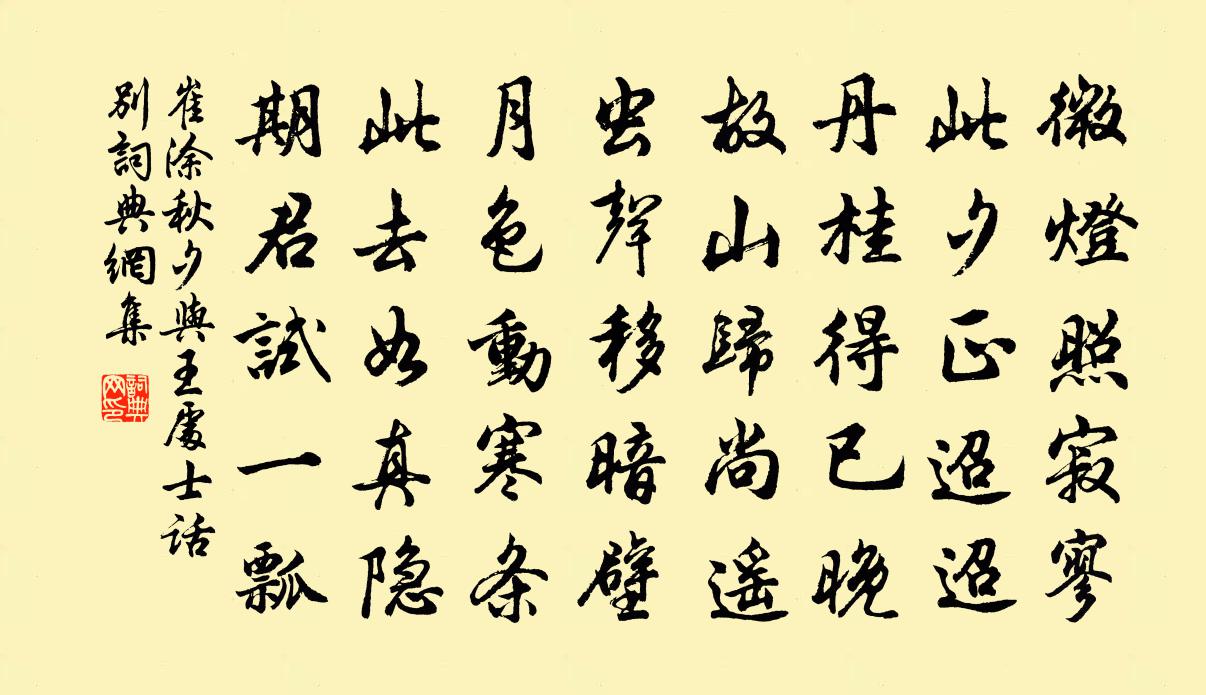 微燈照寂寥
此夕正迢迢
丹桂得已晚
故山歸尚遥
虫聲移暗壁
月色動寒条
此去如真隐
期君試一瓢
崔涂秋夕與王處士話
别詞典網集
詞典網印